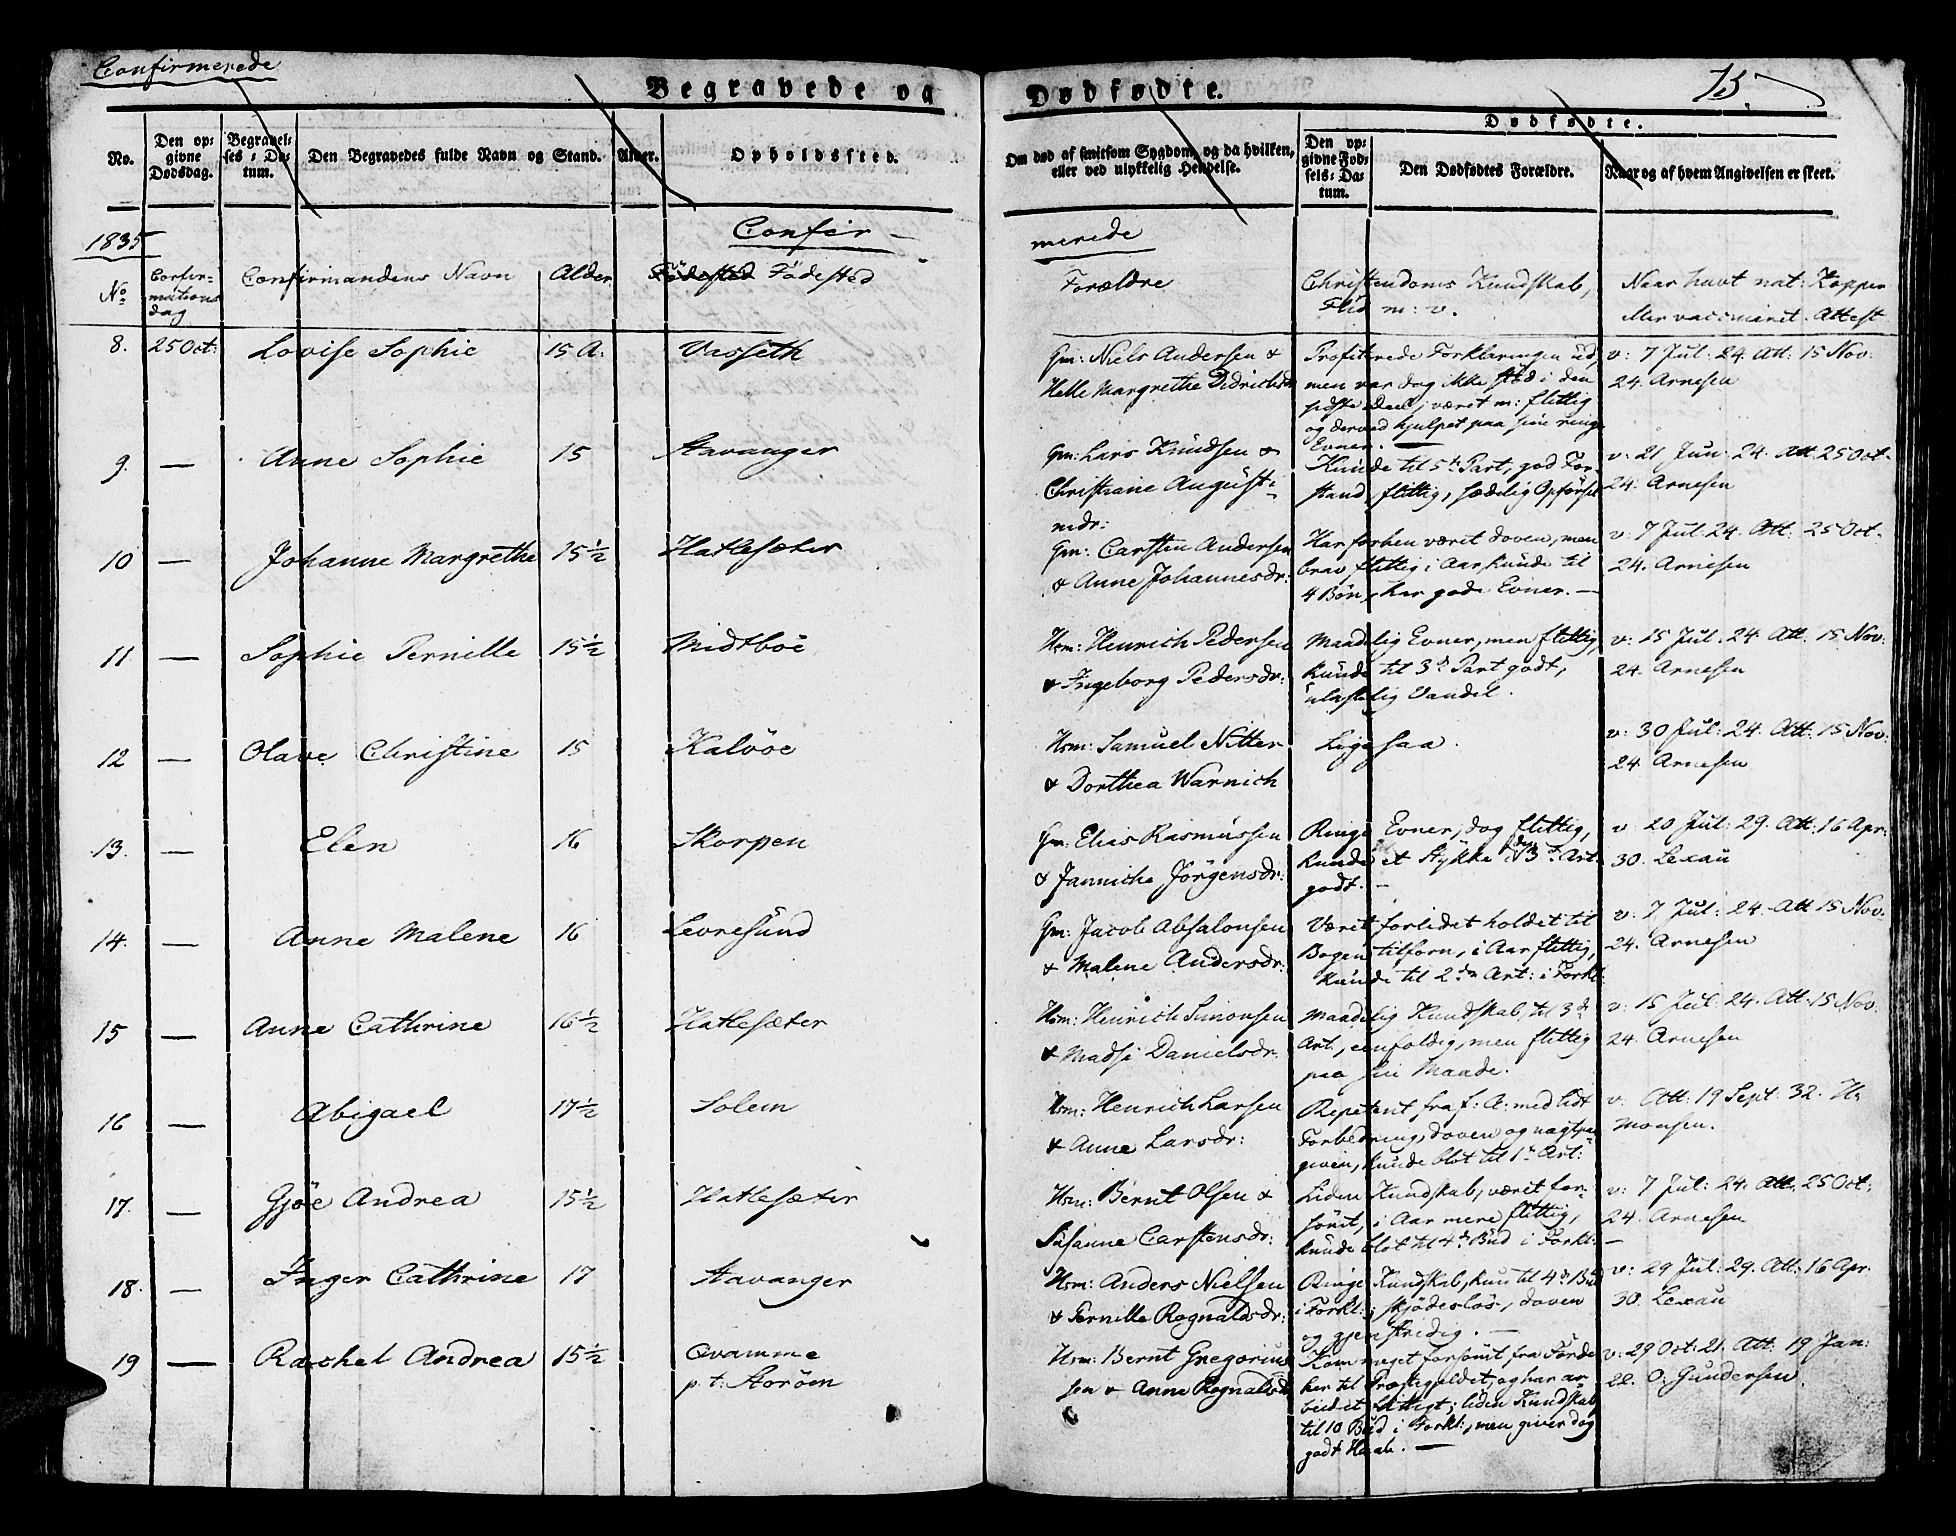 Confirmerede
Begravede og Dødfødte.
75.
No.
Den op-
givne
Dødsdag.
Begravel-
ses-Da-
tum.
Den Begravedes fulde Navn og Stand.
Alder.
Opholdssted.
Om død af smitsom Sygdom, og da hvilken,
eller ved ulykkelig Hendelse.
Dødfødte.
Den op-
givne Fød-
sels-Da-
tum.
Den Dødfødtes Forældre.
Naar og af hvem Angivelsen er skeet.
1835
Confir-
merede
No
Confir-
mations
dag
Confirmandens Navn
Alder
Födested Födested
Forældre
Christendoms Kundskab,
Flid m: v.
Naar havt nat: Kopper
eller vaccineret. Attest
8. 25 Oct: Lovise Sophie 15 A. Vasseth
Gm: Niels Andersen &
Helle Margrethe Didrichsdr
Profiterede Forklaringen ud,
men var dog ikke stød i den
sidste Deel; været m: flittig
og derved hjulpet paa sine ringe
Evner. —
v: 7 Jul: 24. Att: 15 Nov:
24. Arnesen
9. — Anne Sophie 15 Stavanger
Gm: Lars Knudsen &
Christiane August:
mdr:
Kunde til 5te Part, god For-
stand, flittig, sædelig Opførsel
v: 21 Jun: 24. Att: 25 Oct.
24. Arnesen
10 — Johanne Margrethe 15 1/2 Hatlesæter
Gm: Carsten Andersen
& Anne Johannesdr:
Har forhen været doven, men
brav flittig i Aar, kunde til
4 Bön, har gode Evner. —
v: 7 Jul: 24. Att: 25 Oct.
24. Arnesen
11 — Sophie Pernille 15 1/2 Midtböe
Hsm: Henrich Pedersen
& Ingeborg Pedersdr:
Maadelig Evner, men flittig,
kunde til 3d Part godt,
ulastelig Vandel.
v: 15 Jul: 24. Att: 15 Nov:
24. Arnesen
12 — Olave Christine 15 Kalvöe
Hsm: Samuel Nitter
& Dorthea Warnich
Ligesaa.
v: 30 Jul: 24. Att: 15 Nov:
24. Arnesen
13. — Elen 16 Skorpen
Gm: Elias Rasmussen
& Janniche Jörgensdr:
Ringe Evner, dog flittig,
kunde et Stykke i den 3d Art.
godt. —
v: 20 Jul: 29. Att: 16 Apr:
30. Lexau
14. — Anne Malene 16 Levresund
Gm: Jacob Absalonsen
& Malene Andersdr:
Været forlidet holdet til
Bogen tilforn, i Aar flittig,
kunde til 2den Art: i Forkl:
v: 7 Jul: 24. Att 15 Nov.
24. Arnesen
15 — Anne Cathrine 16 1/2 Hatlesæter
Hsm: Henrich Simonsen
& Madsi Danielsdr.
Maadelig Kundskab, til 3d
Art, eenfoldig, men flittig
paa sin Maade.
v: 15 Jul: 24. Att: 15 Nov:
24. Arnesen
16 — Abigael 17 1/2 Solem
Hsm: Henrich Larsen
& Anne Larsdr:
Repetent fra f: A: med lidt
Forbedring, doven og
given, kunde blot til 1te Art:
v: Att: 19 Sept: 32. H.
Monsen.
17. — Gjöe Andrea 15 1/2 Hatlesæter
Hsm: Bernt Olsen &
Susanne Carstensdr:
Liden Kundskab, været for-
sömt, i Aar mere flittig,
kunde blot til 4d Bud i Forkl:
v: 7 Jul: 24. Att: 25 Oct:
24. Arnesen
18. — Inger Cathrine 17 Stavanger
Hsm: Anders Nielsen
& Pernille Rognaldsdr:
Ringe Kundskab, kun til 4d Bud
i Forkl:; skjödeslös, doven
og gjenstridig. —
v: 29 Jul: 29. Att: 16 Apr:
30. Lexau
19 — Rachel Andrea 15 1/2 Qvamme
p. t: Storöen
Hsm: Bernt Gregorius
sen & Anne Rognaldsdr
Kom meget forsömt fra Förde
her til Præstegieldet, og har ar
beidet flittigt; liden Kundskab
til 10 Bud i Forkl:, men giver dog
godt Haab. —
v: 29 Oct: 21. Att: 19 Jan:
22. O. Gundersen.